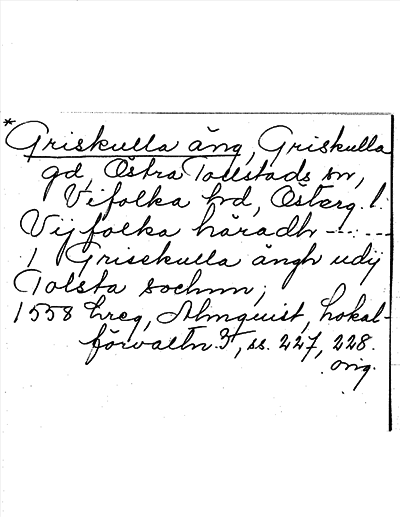 *Griskulla äng, Griskulla
gd, Östra Tollstads sn,
Vifolka hd, Österg. l.
Vijfolka häradh --- . --- . ---
1 Grisekulla ängh udij
Tolsta sochnn;
1558 hreg, Almquist, Lokal-
förvaltn. 3, ss. 227, 228.
orig.